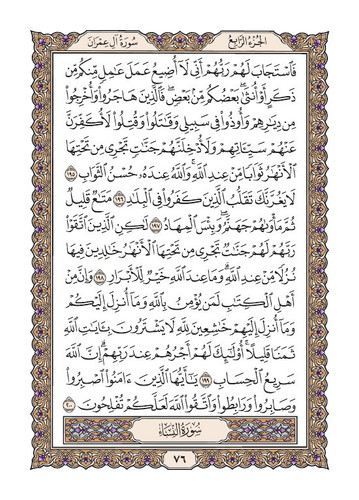 الجُزءُ الرَّابِعُ سُورَةُ آلِ عِمْرَانَ
فَاسْتَجَابَ لَهُمْ رَبُّهُمْ أَنِّي لَا أُضِيعُ عَمَلَ عَامِلٍ مِّنكُم مِّن
ذَكَرٍ أَوْ أُنثَىٰ ۖ بَعْضُكُم مِّن بَعْضٍ ۖ فَالَّذِينَ هَاجَرُوا وَأُخْرِجُوا
مِن دِيَارِهِمْ وَأُوذُوا فِي سَبِيلِي وَقَاتَلُوا وَقُتِلُوا لَأُكَفِّرَنَّ
عَنْهُمْ سَيِّئَاتِهِمْ وَلَأُدْخِلَنَّهُمْ جَنَّاتٍ تَجْرِي مِن تَحْتِهَا
الْأَنْهَارُ ثَوَابًا مِّنْ عِندِ اللَّهِ ۗ وَاللَّهُ عِندَهُ حُسْنُ الثَّوَابِ ١٩٥
لَا يَغُرَّنَّكَ تَقَلُّبُ الَّذِينَ كَفَرُوا فِي الْبِلَادِ ١٩٦ مَتَاعٌ قَلِيلٌ
ثُمَّ مَأْوَاهُمْ جَهَنَّمُ ۚ وَبِئْسَ الْمِهَادُ ١٩٧ لَٰكِنِ الَّذِينَ اتَّقَوْا
رَبَّهُمْ لَهُمْ جَنَّاتٌ تَجْرِي مِن تَحْتِهَا الْأَنْهَارُ خَالِدِينَ فِيهَا
نُزُلًا مِّنْ عِندِ اللَّهِ ۗ وَمَا عِندَ اللَّهِ خَيْرٌ لِّلْأَبْرَارِ ١٩٨ وَإِنَّ مِنْ
أَهْلِ الْكِتَابِ لَمَن يُؤْمِنُ بِاللَّهِ وَمَا أُنزِلَ إِلَيْكُمْ
وَمَا أُنزِلَ إِلَيْهِمْ خَاشِعِينَ لِلَّهِ لَا يَشْتَرُونَ بِآيَاتِ اللَّهِ
ثَمَنًا قَلِيلًا ۗ أُولَٰئِكَ لَهُمْ أَجْرُهُمْ عِندَ رَبِّهِمْ ۗ إِنَّ اللَّهَ
سَرِيعُ الْحِسَابِ ١٩٩ يَا أَيُّهَا الَّذِينَ آمَنُوا اصْبِرُوا
وَصَابِرُوا وَرَابِطُوا وَاتَّقُوا اللَّهَ لَعَلَّكُمْ تُفْلِحُونَ ٢٠٠
سُورَةُ النِّسَاءِ
٧٦